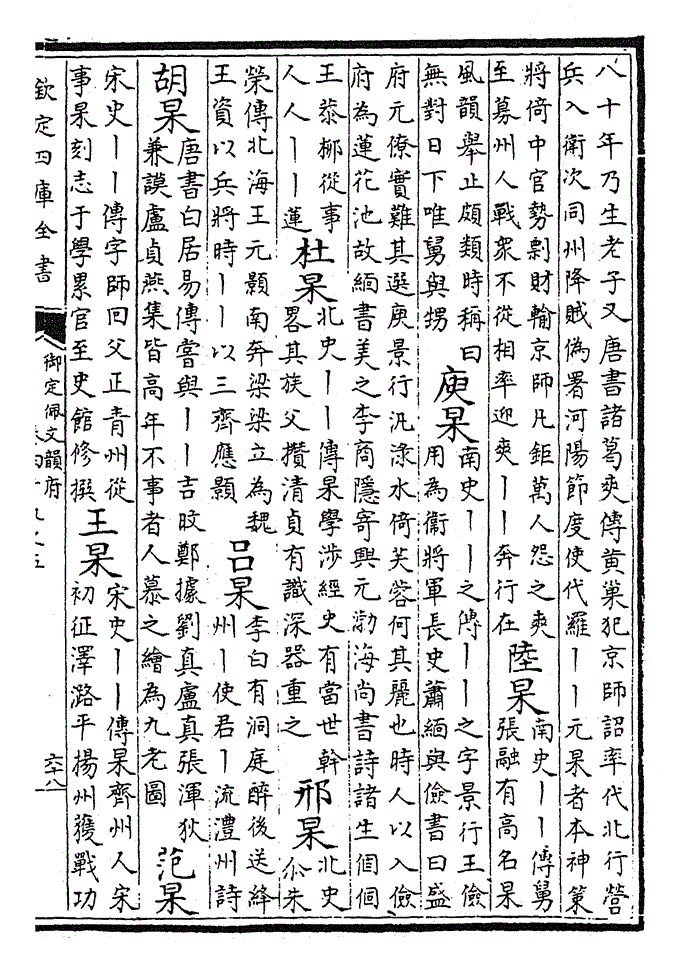 八十年乃生老子又唐書諸葛爽傳黄巢犯京師詔率代北行營
兵入衛次同州降賊偽署河陽節度使代羅丨丨元杲者本神策
將倚中官勢剽財輸京師凡鉅萬人怨之爽
至募州人戰衆不從相率迎爽丨丨奔行在
陸杲
南史丨丨傳舅
張融有高名杲
風韻舉止頗類時稱曰
無對日下唯舅與甥
庾杲
南史丨丨之傳丨丨之字景行王儉
用為衞將軍長史蕭緬與儉書曰盛
府元僚實難其選庾景行汎淥水倚芙蓉何其麗也時人以入儉
府為蓮花池故緬書美之李商隱寄興元渤海尚書詩諸生個個
王恭栁從事
人人丨丨蓮
杜杲
北史丨丨傳杲學涉經史有當世幹
畧其族父攢清貞有識深器重之
邢杲
北史
尒朱
榮傳北海王元顥南奔梁梁立為魏
王資以兵將時丨丨以三齊應顥
吕杲
李白有洞庭醉後送絳
州丨使君丨流澧州詩
胡杲
唐書白居易傳嘗與丨丨吉旼鄭據劉真盧真張渾狄
兼謨盧貞燕集皆高年不事者人慕之繪為九老圖
范杲
宋史丨丨傳字師回父正青州從
事杲刻志于學累官至史館修撰
王杲
宋史丨丨傳杲齊州人宋
初征澤潞平揚州獲戰功
欽定四庫全書
御定佩文韻府
六十八